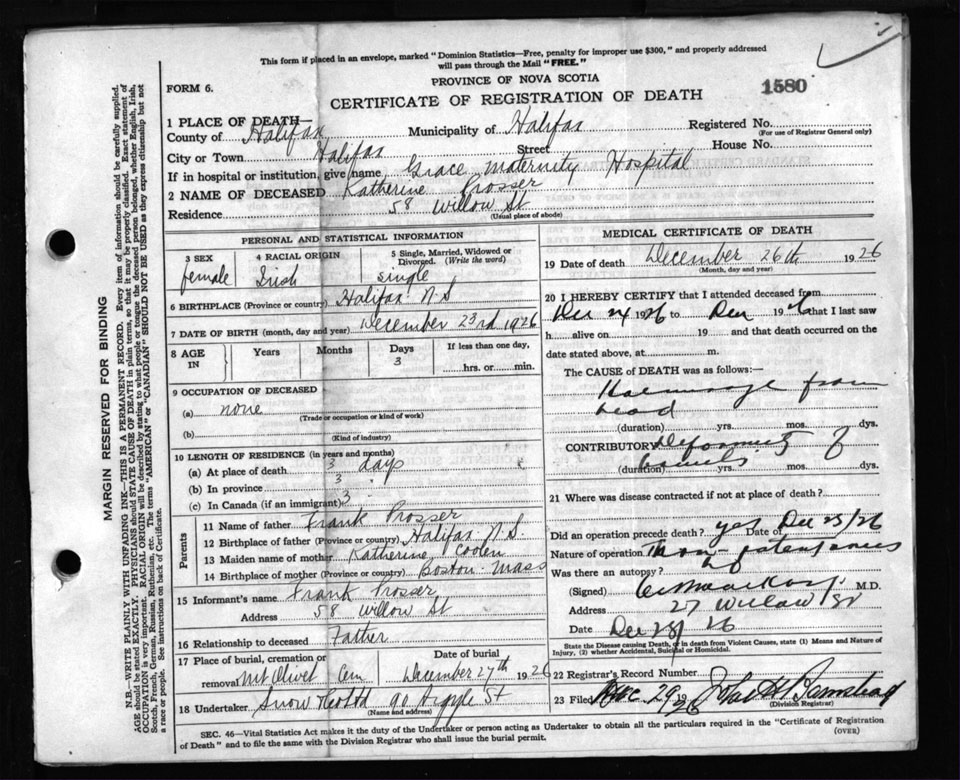 This form if placed in an envelope, marked "Dominion Statistics—Free, penalty for improper use $300," and properly addressed
will pass through the Mail "FREE."
FORM 6.
PROVINCE OF NOVA SCOTIA
1580
CERTIFICATE OF REGISTRATION OF DEATH
1 PLACE OF DEATH—
County of Halifax Municipality of Halifax Registered No.
(For use of Registrar General only)
City or Town Halifax Street House No.
If in hospital or institution, give name Grace Maternity Hospital
2 NAME OF DECEASED Katherine Prosser
Residence 58 Willow St
(Usual place of abode)
PERSONAL AND STATISTICAL INFORMATION
3 SEX 4 RACIAL ORIGIN 5 Single, Married, Widowed or
Divorced. (Write the word)
female Irish single
6 BIRTHPLACE (Province or country) Halifax N.S
7 DATE OF BIRTH (month, day and year) December 23rd 1926
8 AGE IN Years Months Days If less than one day,
3 hrs. or min.
9 OCCUPATION OF DECEASED
(a) none
(Trade or occupation or kind of work)
(b)
(Kind of industry)
10 LENGTH OF RESIDENCE (in years and months)
(a) At place of death 3 days
(b) In province 3
(c) In Canada (if an immigrant) 3
Parents
11 Name of father Frank Prosser
12 Birthplace of father (Province or country) Halifax N.S.
13 Maiden name of mother Katherine Coolen
14 Birthplace of mother (Province or country) Boston - Mass
15 Informant's name Frank Prosser
Address 58 Willow St
16 Relationship to deceased Father
17 Place of burial, cremation or Date of burial
removal Mt Olivet Cem December 27th 1926
18 Undertaker Snow & Co Ltd 90 Argyle St
(Name and address)
MEDICAL CERTIFICATE OF DEATH
19 Date of death December 26th 1926
(Month, day and year)
20 I HEREBY CERTIFY that I attended deceased from
Dec 24 1926 to Dec 1926 that I last saw
h alive on 19 and that death occurred on the
date stated above, at m.
The CAUSE of DEATH was as follows:—
Haemorrage from
head
(duration) yrs. mos. dys.
CONTRIBUTORY Deformity of
(duration) yrs. mos. dys.
21 Where was disease contracted if not at place of death?
Did an operation precede death? yes Date of Dec 25/26
Nature of operation
Was there an autopsy? no
(Signed) M.D.
Address 27 Willow St
Date Dec 28/26
State the Disease causing Death, or in death from Violent Causes, state (1) Means and Nature of
Injury, (2) whether Accidental, Suicidal or Homicidal.
22 Registrar's Record Number
23 Filed Dec. 29 1926
(Division Registrar)
SEC. 46—Vital Statistics Act makes it the duty of the Undertaker or person acting as Undertaker to obtain all the particulars required in the "Certificate of Registration
of Death" and to file the same with the Division Registrar who shall issue the burial permit.
(OVER)
MARGIN RESERVED FOR BINDING
N.B.—WRITE PLAINLY WITH UNFADING INK—THIS IS A PERMANENT RECORD. Every item of information should be carefully supplied.
AGE should be stated EXACTLY. PHYSICIANS should STATE CAUSE OF DEATH in plain terms, so that it may be properly classified. Exact statement of
OCCUPATION is very important. RACIAL ORIGIN will be described by stating to what people or tongue the deceased person belonged, whether English, Irish,
Scotch, French, German, Russian, Ruthenian, etc. The terms "AMERICAN" or "CANADIAN" SHOULD NOT BE USED as they express citizenship but not
a race or people. See instructions on back of Certificate.